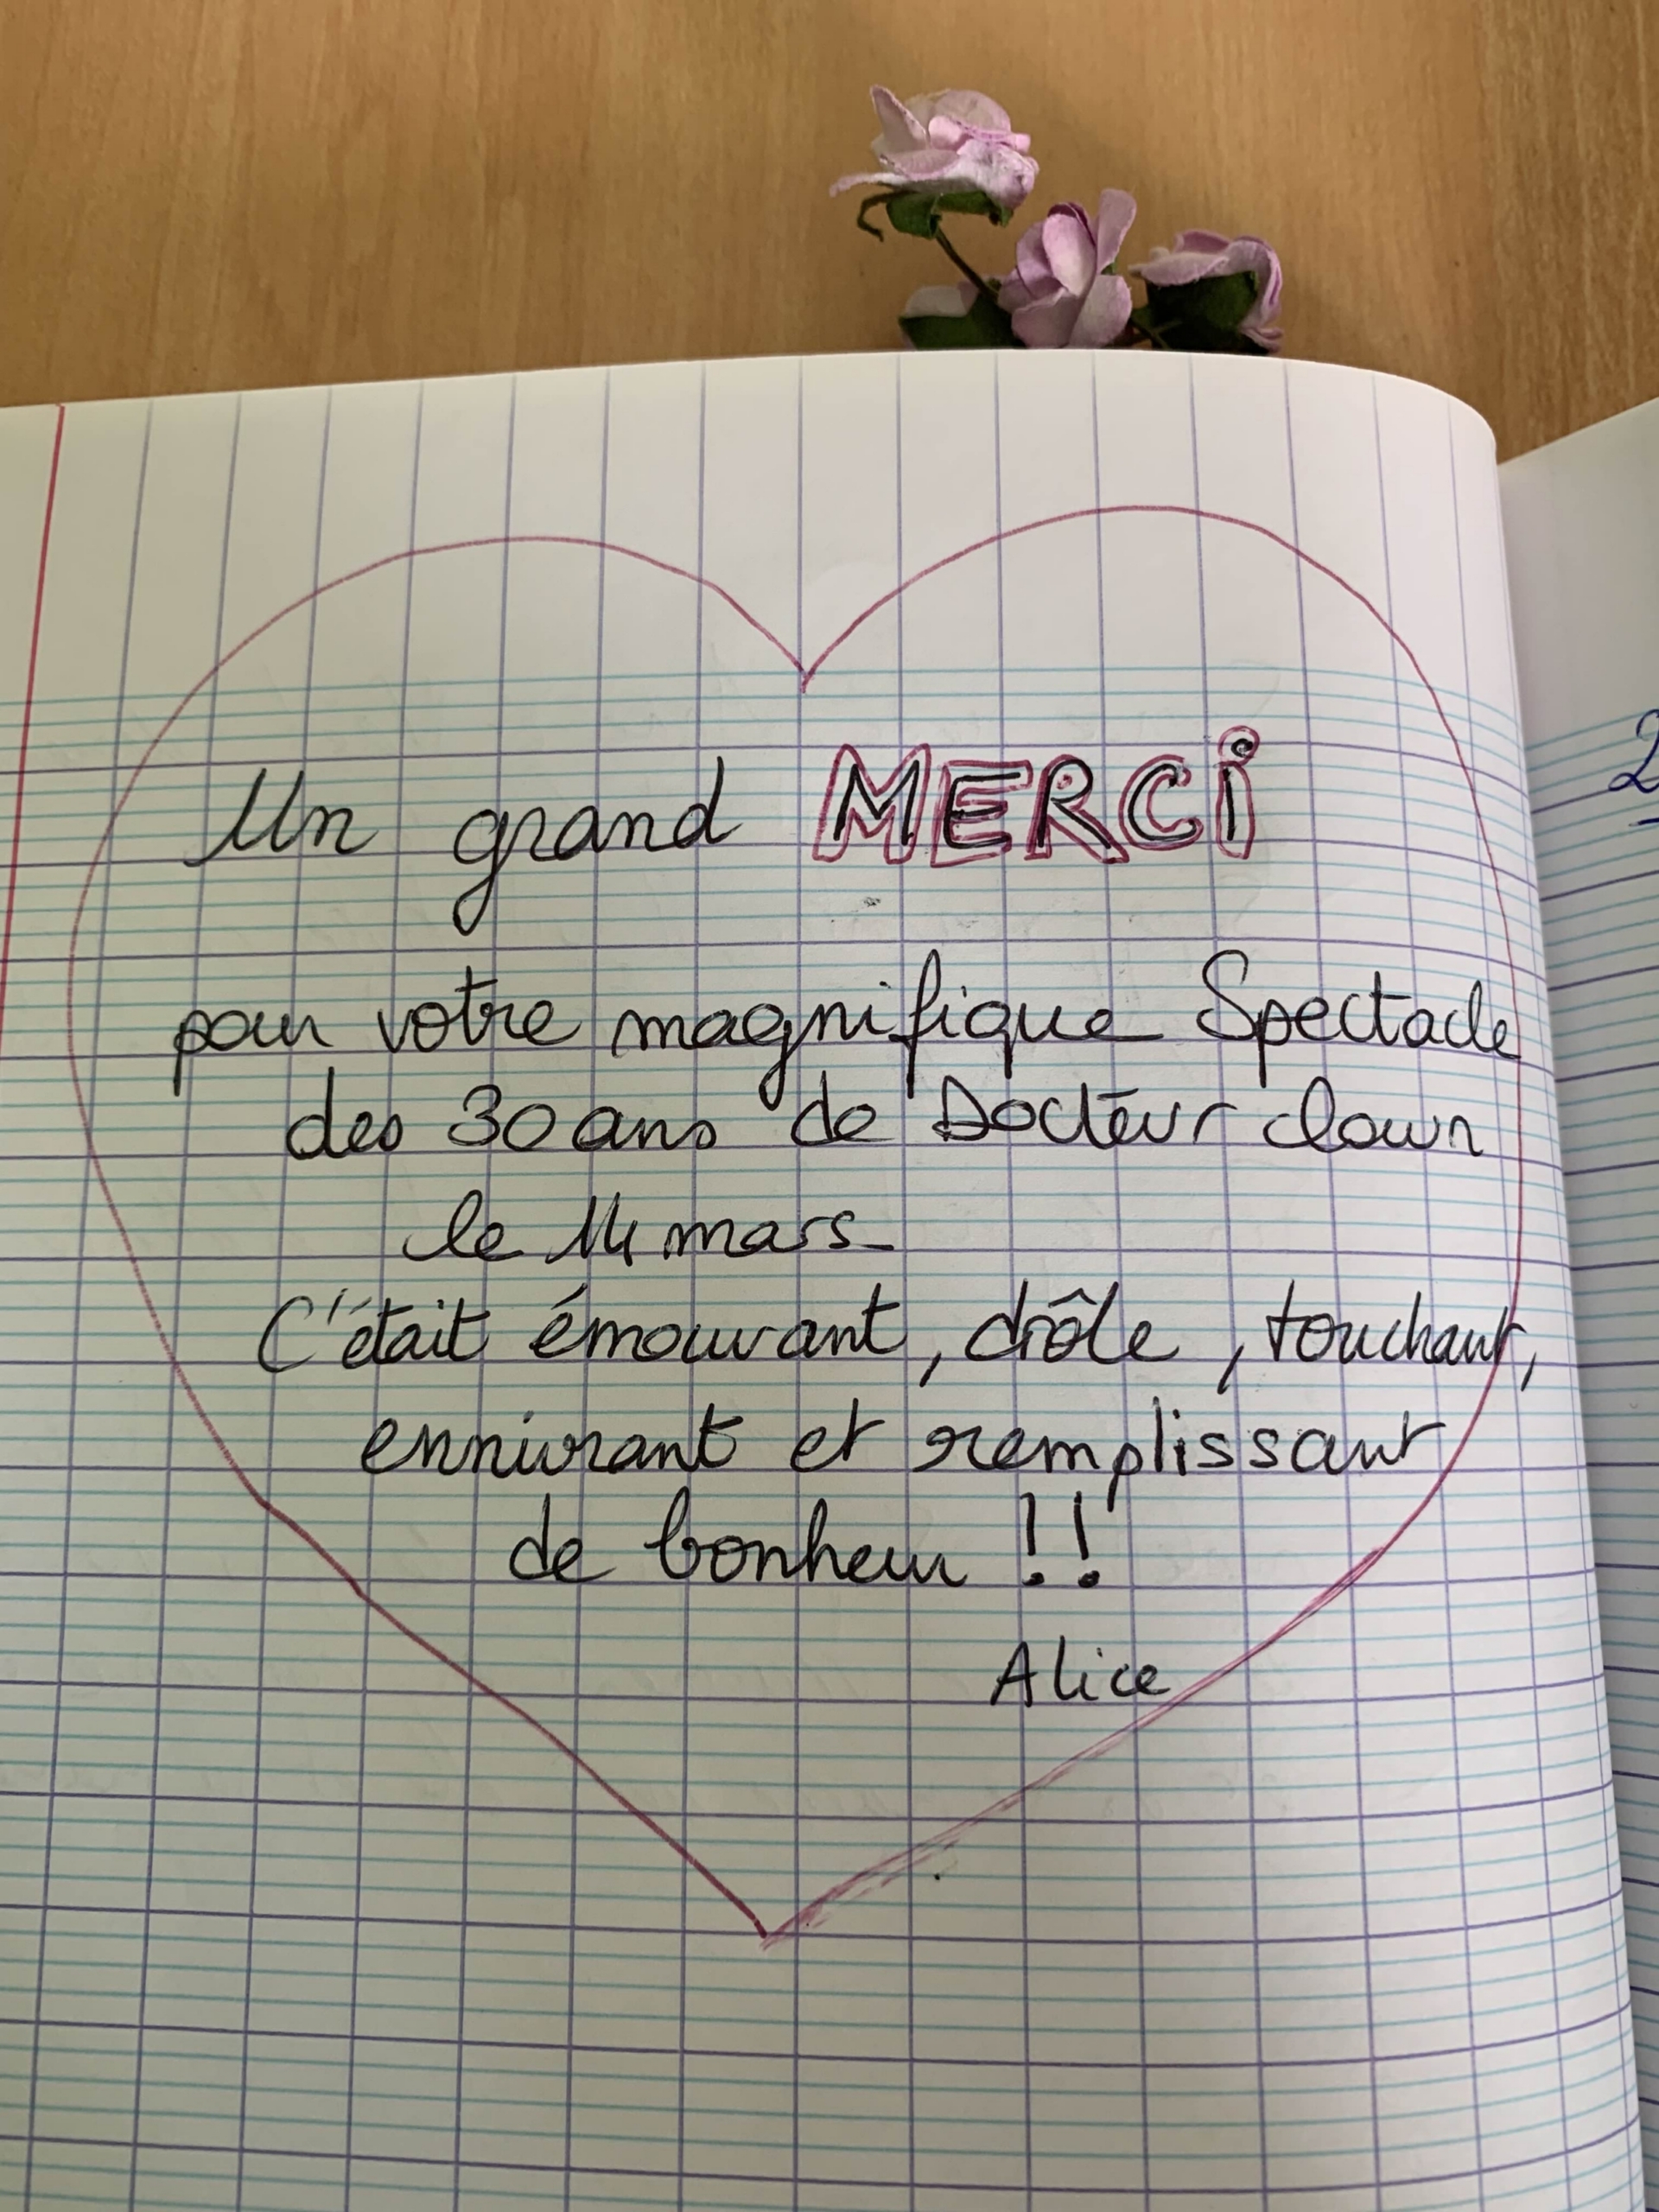 Un grand MERCi
pour votre magnifique Spectacle
des 30 ans de Docteur clown
le 14 mars_
C'était émouvant, drôle, touchant,
ennivrant et remplissant
de bonheur !!
Alice
2